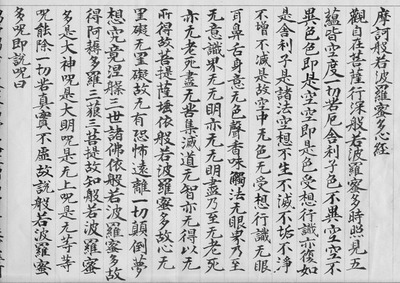 摩訶般若波羅蜜多心經
觀自在菩薩行深般若波羅蜜多時照見五
蘊皆空度一切苦厄舍利子色不異空空不
異色色即是空空即是色受想行識亦復如
是舍利子是諸法空想不生不滅不垢不淨
不增不減是故空中无色无受想行識无眼
耳鼻舌身意无色聲香味觸法无眼界乃至
无意識界无无明亦无无明盡乃至无老死
亦无老死盡无苦集滅道无智亦无得以无
所得故菩提薩埵依般若波羅蜜多故心无
罣礙无罣礙故无有恐怖遠離一切顛倒夢
想究竟涅槃三世諸佛依般若波羅蜜多故
得阿耨多羅三藐三菩提故知般若波羅蜜
多是大神呪是大明呪是无上呪是无等等
呪能除一切苦真實不虛故說般若波羅蜜
多呪即說呪曰